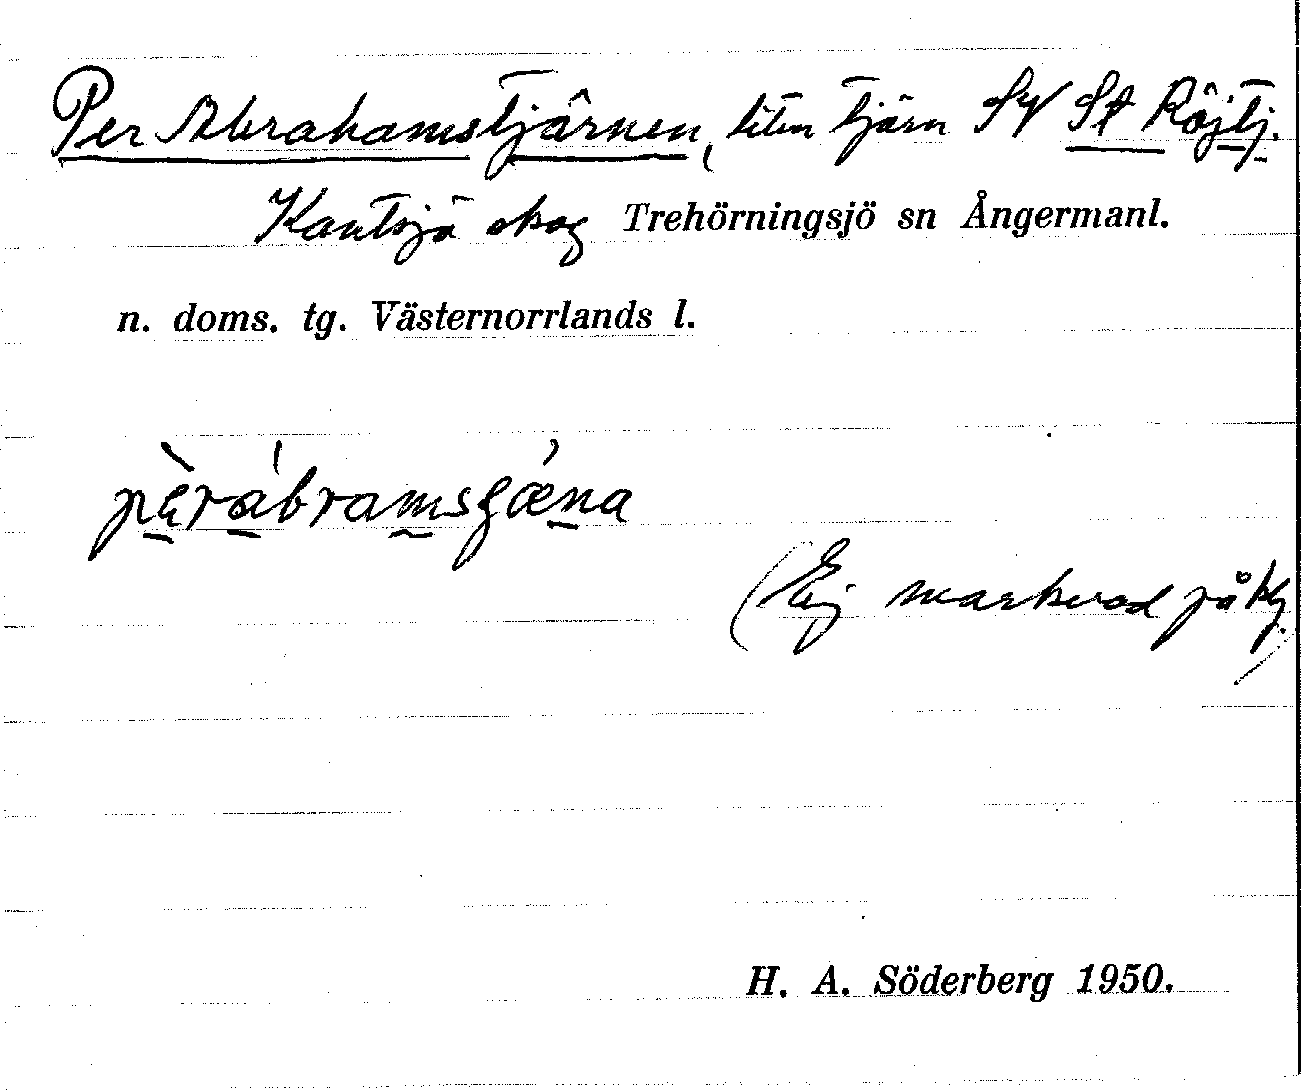 Per Abrahamstjärnen, liten tjärn SV St Röjtj.
Kantsjö skog Trehörningsjö sn Ångermanl.
n. doms. tg. Västernorrlands l.
pèrábramsʃǽna
(Ej markerad på k)
H. A. Söderberg 1950.